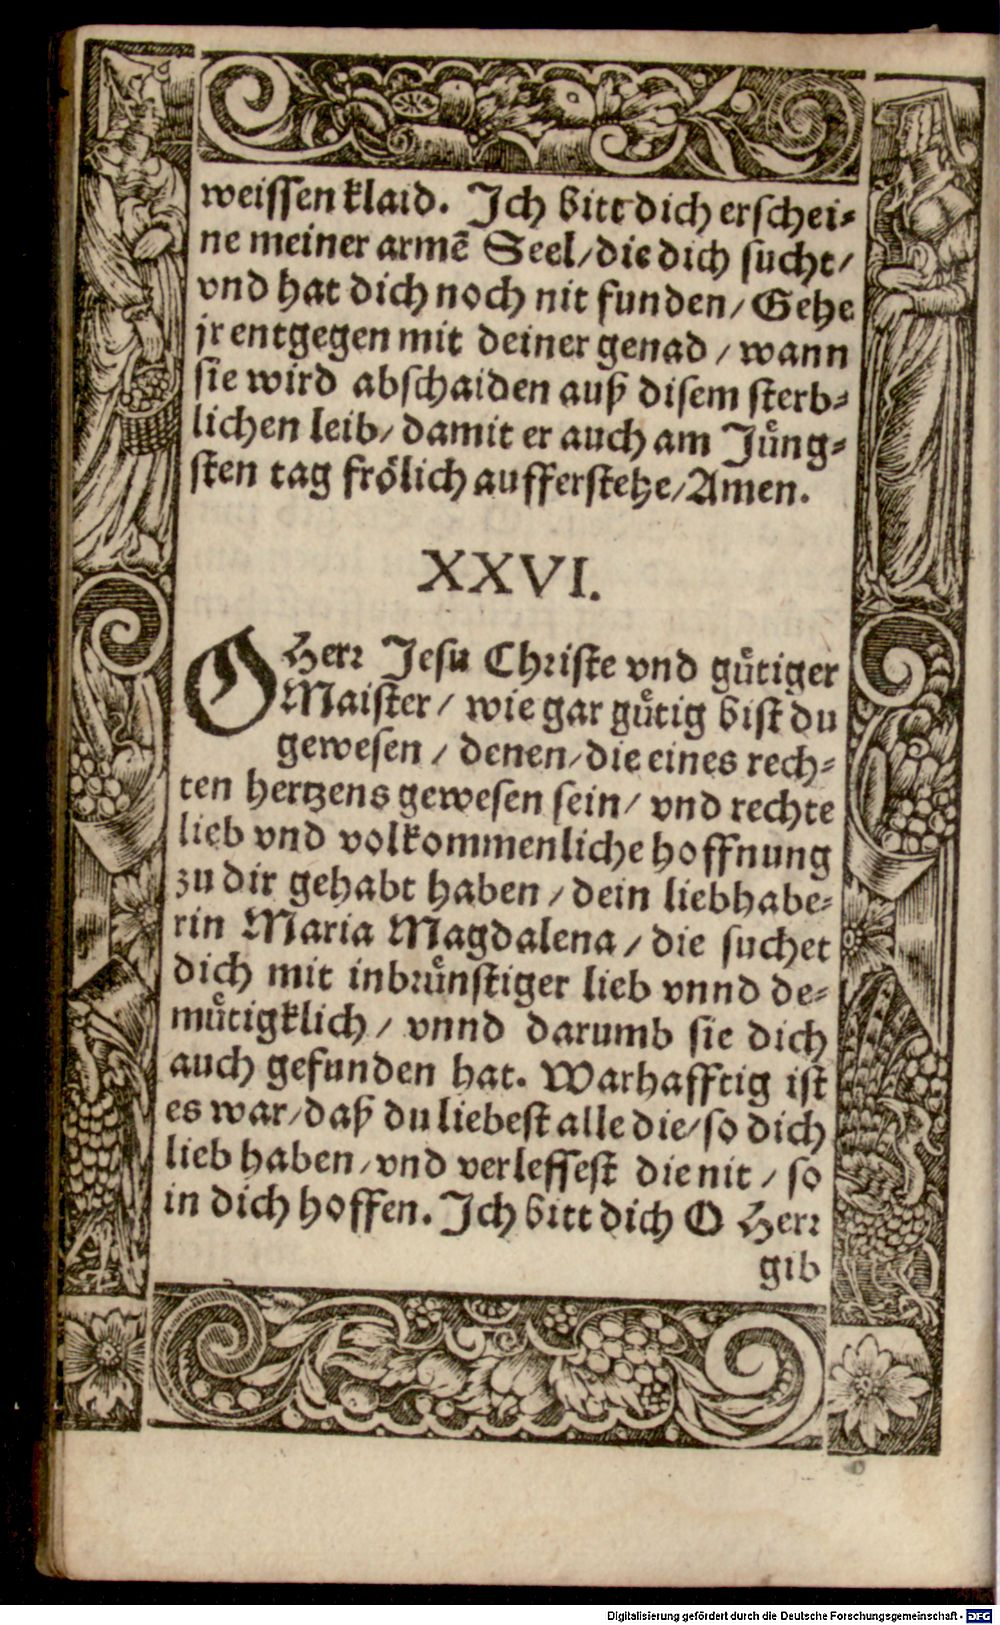 weissen klaid. Ich bitt dich erschei⸗
ne meiner armẽ Seel/die dich sucht/
vnd hat dich noch nit funden/Gehe
jr entgegen mit deiner genad/wann
sie wird abschaiden auß disem sterb⸗
lichen leib/damit er auch am Jüng⸗
sten tag frölich aufferstehe/Amen.
XXVI.
O Herr Jesu Christe vnd gütiger
Maister/wie gar gütig bist du
gewesen/denen/die eines rech⸗
ten hertzens gewesen sein/vnd rechte
lieb vnd volkommenliche hoffnung
zu dir gehabt haben/dein liebhabe⸗
rin Maria Magdalena/die suchet
dich mit inbrünstiger lieb vnnd de⸗
mütigklich/vnnd darumb sie dich
auch gefunden hat. Warhafftig ist
es war/daß du liebest alle die/so dich
lieb haben/vnd verlessest die nit/so
in dich hoffen. Ich bitt dich O Herr
gib
Digitalisierung gefördert durch die Deutsche Forschungsgemeinschaft - DFG